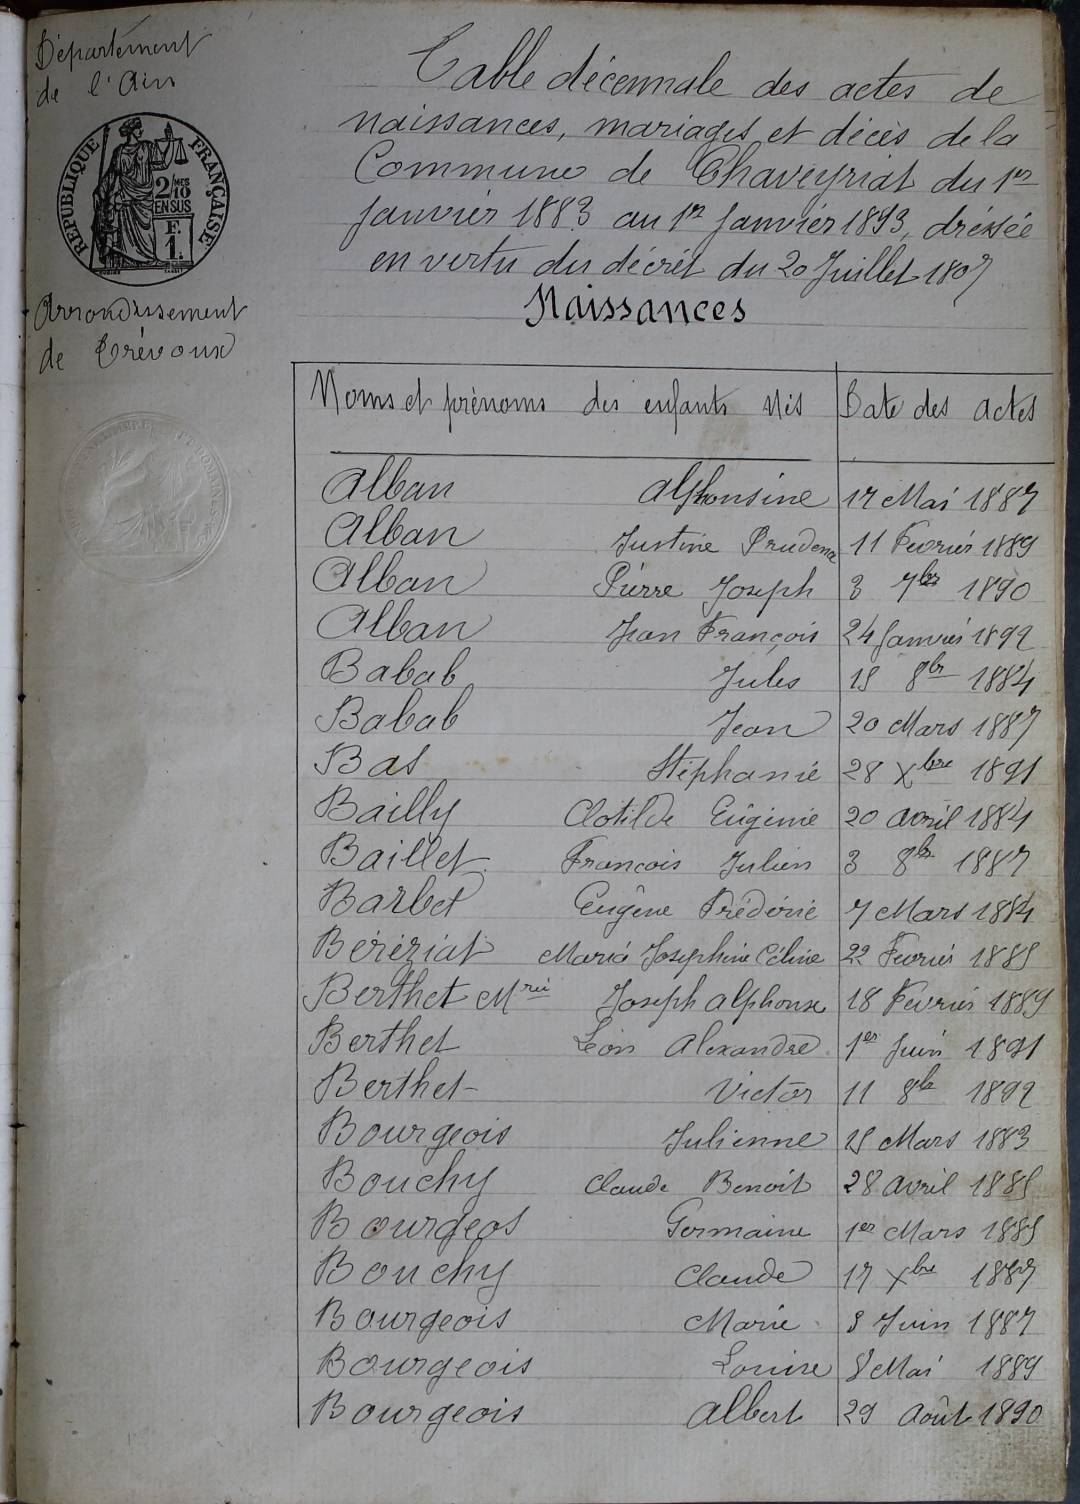 Département
de l'Ain
RÉPUBLIQUE FRANÇAISE
2/10 MES
EN SUS
F.
1.
Arrondissement
de Trévoux
Table décennale des actes de
naissances, mariages et décès de la
Commune de Chaveyriat du 1er
janvier 1883 au 1er janvier 1893, dressée
en vertu du décret du 20 Juillet 1807
Naissances
Noms et prénoms des enfants Nés Date des actes
Alban Alphonsine 17 Mai 1887
Alban Justine Prudence 11 Février 1889
Alban Pierre Joseph 3 7bre 1890
Alban Jean François 24 Janvier 1892
Babab Jules 15 8bre 1884
Babab Jean 20 Mars 1887
Bas Stéphanie 28 Xbre 1891
Bailly Clotilde Eugénie 20 avril 1884
Baillet François Julien 3 8bre 1887
Barbet Eugène Frédéric 7 Mars 1884
Béréziat Maria Joséphine Céline 22 Février 1885
Berthet Mrie Joseph Alphonse 18 Février 1889
Berthet Léon Alexandre 1er Juin 1891
Berthet Victor 11 8bre 1892
Bourgeois Julienne 25 Mars 1883
Bouchy Claude Benoit 28 avril 1885
Bourgeos Germaine 1er Mars 1885
Bouchy Claude 17 Xbre 1887
Bourgeois Marie Juin 1887
Bourgeois Louise 8 Mai 1889
Bourgeois Albert 29 Août 1890